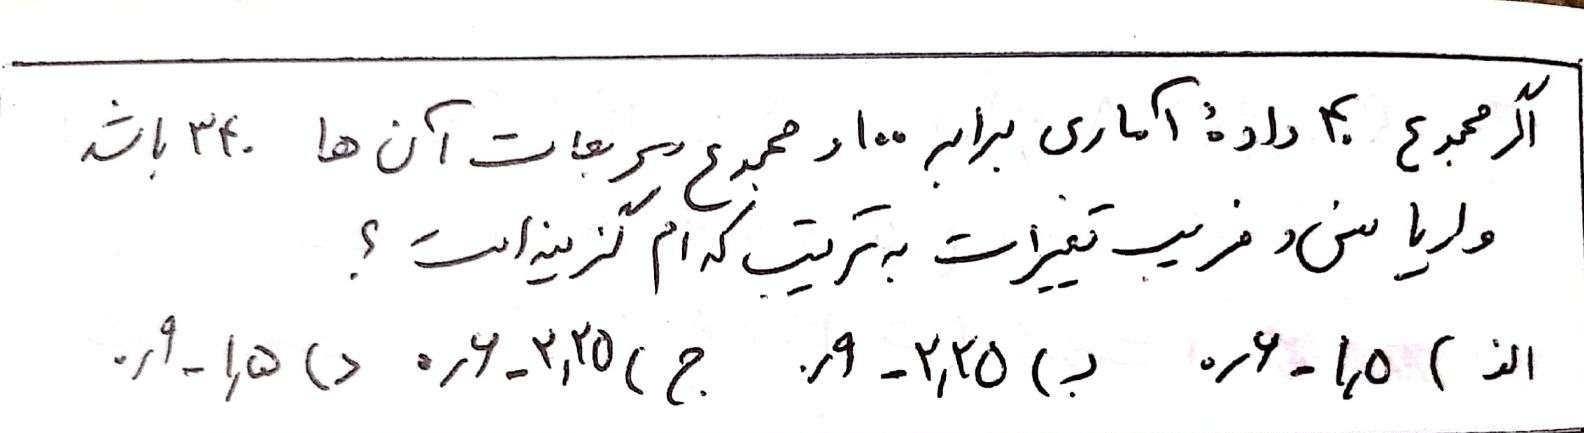 اگر مجموع ۴۰ دادهٔ آماری برابر ۱۰۰ و مجموع مربعات آن ها ۳۴۰ باشد
واریانس و ضریب تغییرات به ترتیب کدام گزینه است ؟
الف ) ۱٫۵ - ۰٫۶ ب ) ۲٫۲۵ - ۰٫۹ ج ) ۲٫۲۵ - ۰٫۶ د ) ۱٫۵ - ۰٫۹